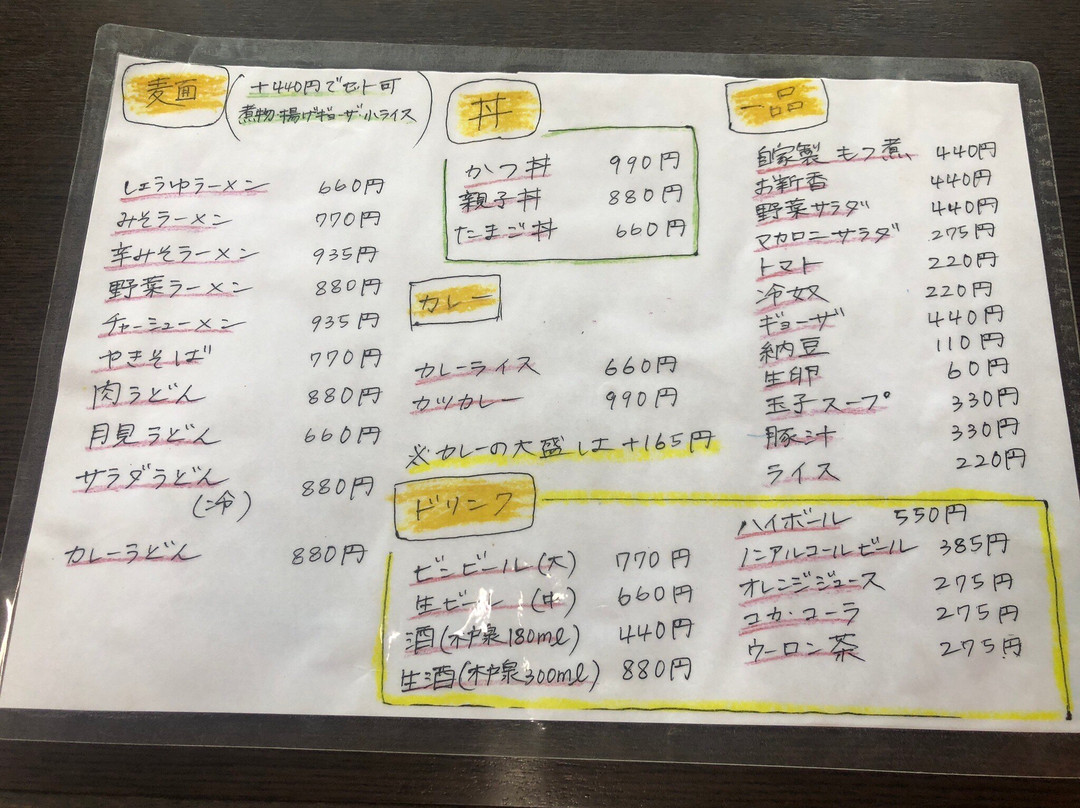 麦面
+440円でセット可
煮物・揚げギョーザ・小ライス
しょうゆラーメン 660円
みそラーメン 770円
辛みそラーメン 935円
野菜ラーメン 880円
チャーシューメン 935円
やきそば 770円
肉うどん 880円
月見うどん 660円
サラダうどん 880円
(冷)
カレーうどん 880円
丼
かつ丼 990円
親子丼 880円
たまご丼 660円
カレー
カレーライス 660円
カツカレー 990円
※カレーの大盛は+165円
一品
自家製 もつ煮 440円
お新香 440円
野菜サラダ 440円
マカロニサラダ 275円
トマト 220円
冷奴 220円
ギョーザ 440円
納豆 110円
生卵 60円
玉子スープ 330円
豚汁 330円
ライス 220円
ドリンク
ビンビール(大) 770円
生ビール(中) 660円
酒(泉180ml) 440円
生酒(泉300ml) 880円
ハイボール 550円
ノンアルコールビール 385円
オレンジジュース 275円
コカ・コーラ 275円
ウーロン茶 275円